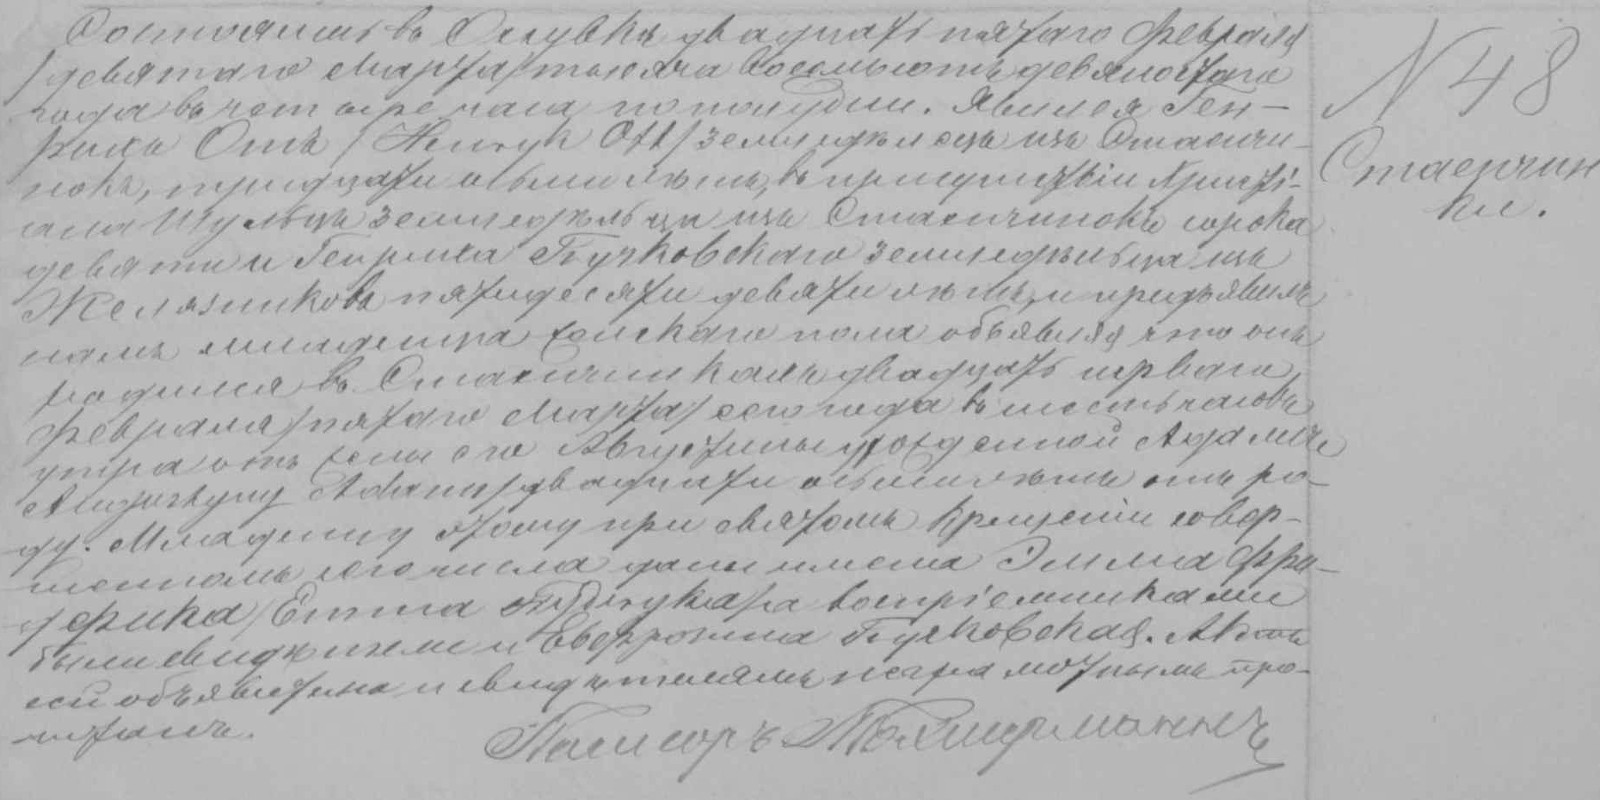 Состоялось въ Слупкѣ двадцать пятаго Февраля
/девятаго Марта/ тысяча восемьсотъ девяностаго
года въ четыре часа по полудни. Явился Ген-
рикъ Отъ /Henryk Ott/ земледѣлецъ изъ Стасичи-
нокъ, тридцати осьми лѣтъ, въ присутствіи Христі-
ана Шульца земледѣльца изъ Стасичинокъ сорока
девяти и Генрика земледѣльца изъ
Желязникова пятидесяти девяти лѣтъ, и предъявилъ
намъ младенца женскаго пола объявляя что онъ
родился въ Стасичинкахъ двадцать перваго
Февраля /пятаго Марта/ сего года въ шесть часовъ
утра отъ жены его Августины урожденной Адамъ
/Augustyny Adam/ двадцати осьми лѣтъ отъ ро-
ду. Младенцу этому при святомъ крещеніи совер-
шенномъ сего числа даны имена Эмма Фри-
дерика /Emma а воспріемниками
были свидѣтели и Евфрозина. Актъ
сей объявителю и свидѣтелямъ неграмотнымъ про-
читанъ.
Пасторъ
N 48
Стасичин
ки.